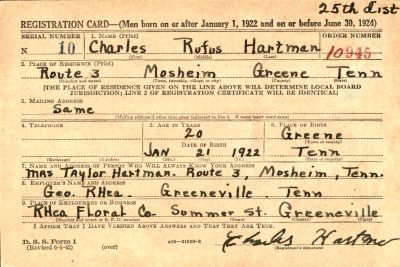 25th dist
REGISTRATION CARD—(Men born on or after January 1, 1922 and on or before June 30, 1924)
SERIAL NUMBER 1. NAME (Print) ORDER NUMBER
N 10 Charles Rufus Hartman 10945
(First) (Middle) (Last)
2. PLACE OF RESIDENCE (Print)
Route 3 Mosheim Greene Tenn
(Number and street) (Town, township, village, or city) (County) (State)
[THE PLACE OF RESIDENCE GIVEN ON THE LINE ABOVE WILL DETERMINE LOCAL BOARD
JURISDICTION; LINE 2 OF REGISTRATION CERTIFICATE WILL BE IDENTICAL]
3. MAILING ADDRESS
Same
[Mailing address if other than place indicated on line 2. If same insert word same]
4. TELEPHONE 5. AGE IN YEARS 6. PLACE OF BIRTH
20 Greene
DATE OF BIRTH (Town or county)
JAN 21 1922 Tenn
(Exchange) (Number) (Mo.) (Day) (Yr.) (State or country)
7. NAME AND ADDRESS OF PERSON WHO WILL ALWAYS KNOW YOUR ADDRESS
Mrs Taylor Hartman. Route 3, Mosheim, Tenn.
8. EMPLOYER'S NAME AND ADDRESS
Geo. RHea. Greeneville Tenn
9. PLACE OF EMPLOYMENT OR BUSINESS
RHea Floral Co. Sommer St. Greeneville
(Number and street or R. F. D. number) (Town) (County) (State)
I AFFIRM THAT I HAVE VERIFIED ABOVE ANSWERS AND THAT THEY ARE TRUE.
D. S. S. Form 1
(Revised 6-9-42) (over) Charles Hartman
(Registrant's signature)